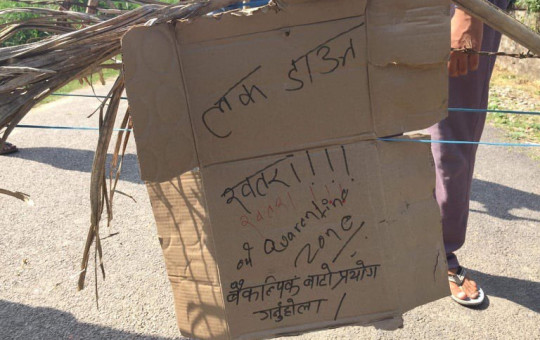 लक डाउन
खतरा।।।।
Quarentine
zone
वैकल्पिक बाटो प्रयोग
गर्नुहोला।